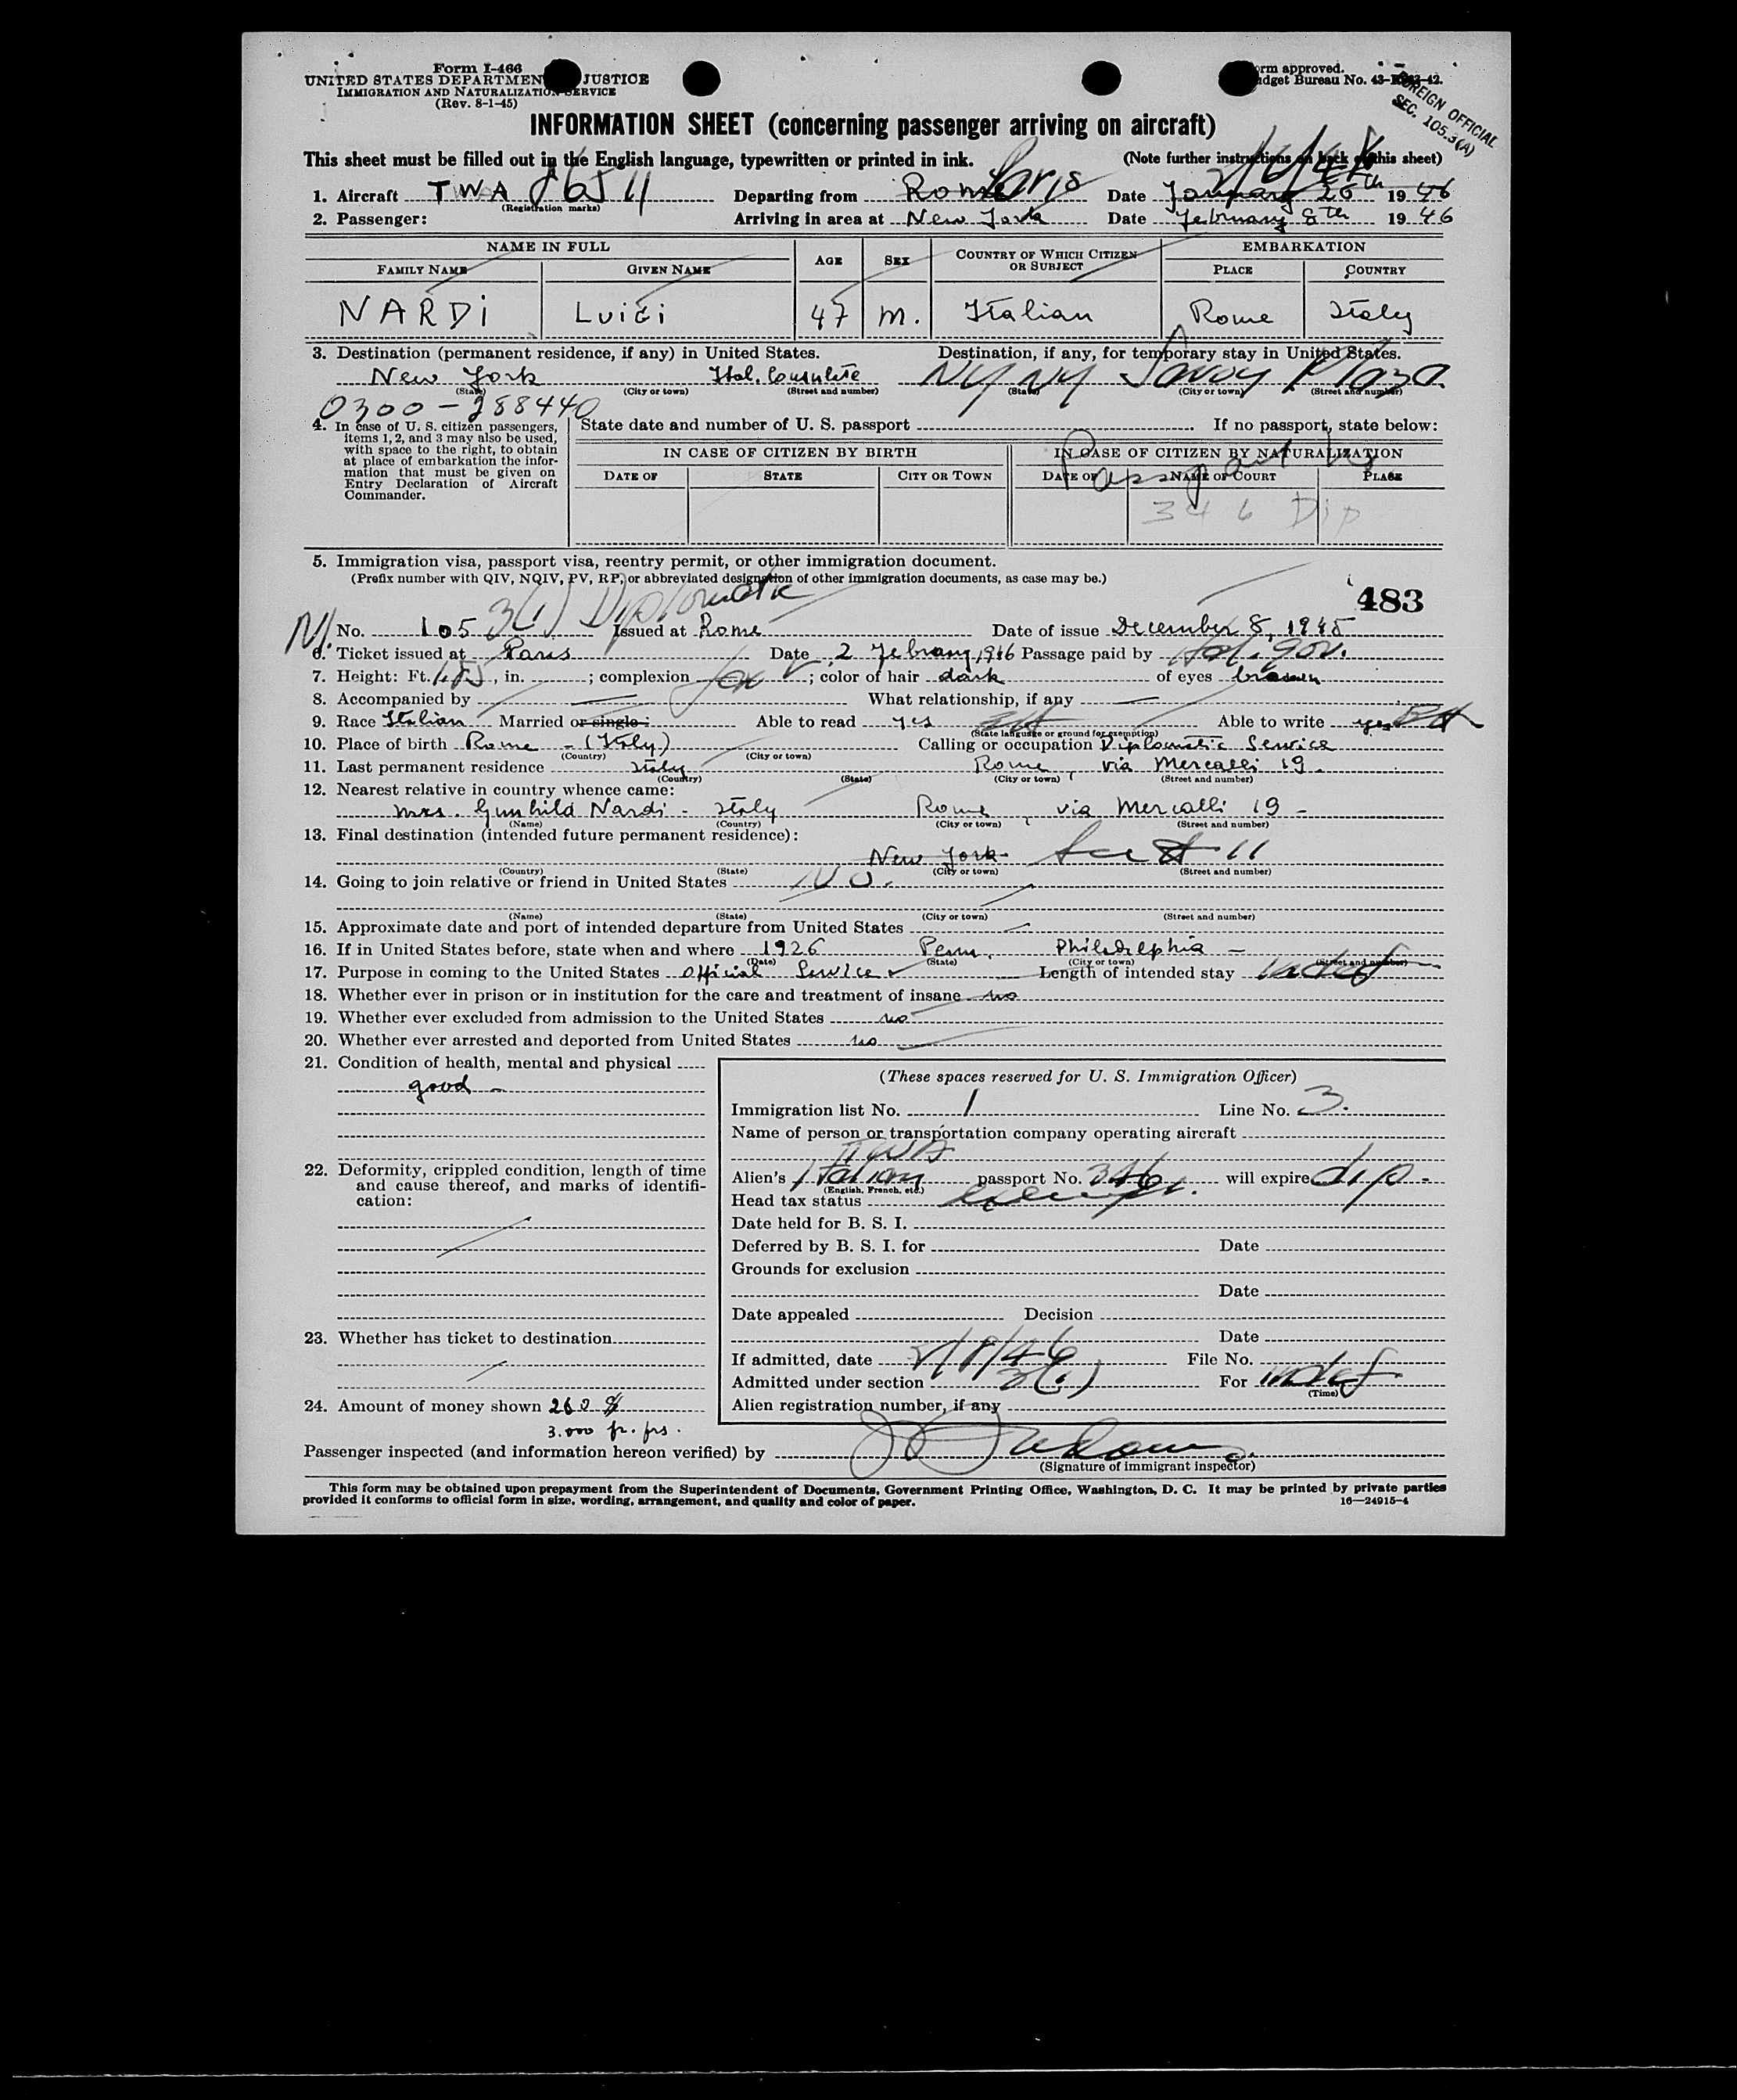 Form I-466
UNITED STATES DEPARTMENT JUSTICE
IMMIGRATION AND NATURALIZATION SERVICE
(Rev. 8-1-45)
orm approved.
dget Bureau No. 43-
FOREIGN OFFICIAL
SEC. 105.3(A)
INFORMATION SHEET (concerning passenger arriving on aircraft)
This sheet must be filled out in the English language, typewritten or printed in ink. (Note further instructions on back of this sheet)
1. Aircraft TWA Departing from Rome Paris Date January 26th 1946
(Registration marks)
2. Passenger: Arriving in area at New York Date February 8th 1946
NAME IN FULL AGE SEX COUNTRY OF WHICH CITIZEN OR SUBJECT EMBARKATION
FAMILY NAME GIVEN NAME PLACE COUNTRY
NARDI LUIGI 47 M. Italian Rome Italy
3. Destination (permanent residence, if any) in United States. Destination, if any, for temporary stay in United States.
New York Ital. Consulate NY NY Savoy Plaza
(State) (City or town) (Street and number) (State) (City or town) (Street and number)
0300-288440
4. In case of U. S. citizen passengers, items 1, 2, and 3 may also be used, with space to the right, to obtain at place of embarkation the information that must be given on Entry Declaration of Aircraft Commander.
State date and number of U. S. passport If no passport, state below:
IN CASE OF CITIZEN BY BIRTH IN CASE OF CITIZEN BY NATURALIZATION
DATE OF STATE CITY OR TOWN DATE OF NAME OF COURT PLACE
Passport No
346 Dip
5. Immigration visa, passport visa, reentry permit, or other immigration document.
(Prefix number with QIV, NQIV, PV, RP, or abbreviated designation of other immigration documents, as case may be.)
3(1) Diplomatic
483
No. 105 Issued at Rome Date of issue December 8, 1945
6. Ticket issued at Paris Date 2 February 1946 Passage paid by Ital. gov.
7. Height: Ft. 1.85, in. ; complexion ; color of hair dark of eyes brown
8. Accompanied by — What relationship, if any —
9. Race Italian Married or single: Able to read yes Able to write yes
(State language or ground for exemption)
10. Place of birth Rome - (Italy) Calling or occupation Diplomatic Service
(Country) (City or town)
11. Last permanent residence Italy Rome, via Mercalli 19.
(Country) (State) (City or town) (Street and number)
12. Nearest relative in country whence came:
Mrs. Gunhild Nardi - Italy Rome, via Mercalli 19 -
(Name) (Country) (City or town) (Street and number)
13. Final destination (intended future permanent residence):
New York
(Country) (State) (City or town) (Street and number)
14. Going to join relative or friend in United States NO.
(Name) (State) (City or town) (Street and number)
15. Approximate date and port of intended departure from United States —
16. If in United States before, state when and where 1926 Penn. Philadelphia -
(Date) (State) (City or town) (Street and number)
17. Purpose in coming to the United States Official Service Length of intended stay indef
18. Whether ever in prison or in institution for the care and treatment of insane no
19. Whether ever excluded from admission to the United States no
20. Whether ever arrested and deported from United States no
21. Condition of health, mental and physical
good -
22. Deformity, crippled condition, length of time and cause thereof, and marks of identification:
23. Whether has ticket to destination
24. Amount of money shown 260 $
3.000 fr. frs.
(These spaces reserved for U. S. Immigration Officer)
Immigration list No. 1 Line No. 3.
Name of person or transportation company operating aircraft
TWA
Alien's Italian passport No. 346 will expire dip -
(English, French, etc.)
Head tax status exempt.
Date held for B. S. I.
Deferred by B. S. I. for Date
Grounds for exclusion
Date
Date appealed Decision
Date
If admitted, date 2/8/46 File No.
Admitted under section 3(1) For indef
(Time)
Alien registration number, if any
Passenger inspected (and information hereon verified) by
(Signature of immigrant inspector)
This form may be obtained upon prepayment from the Superintendent of Documents, Government Printing Office, Washington, D. C. It may be printed by private parties
provided it conforms to official form in size, wording, arrangement, and quality and color of paper. 16—24915-4